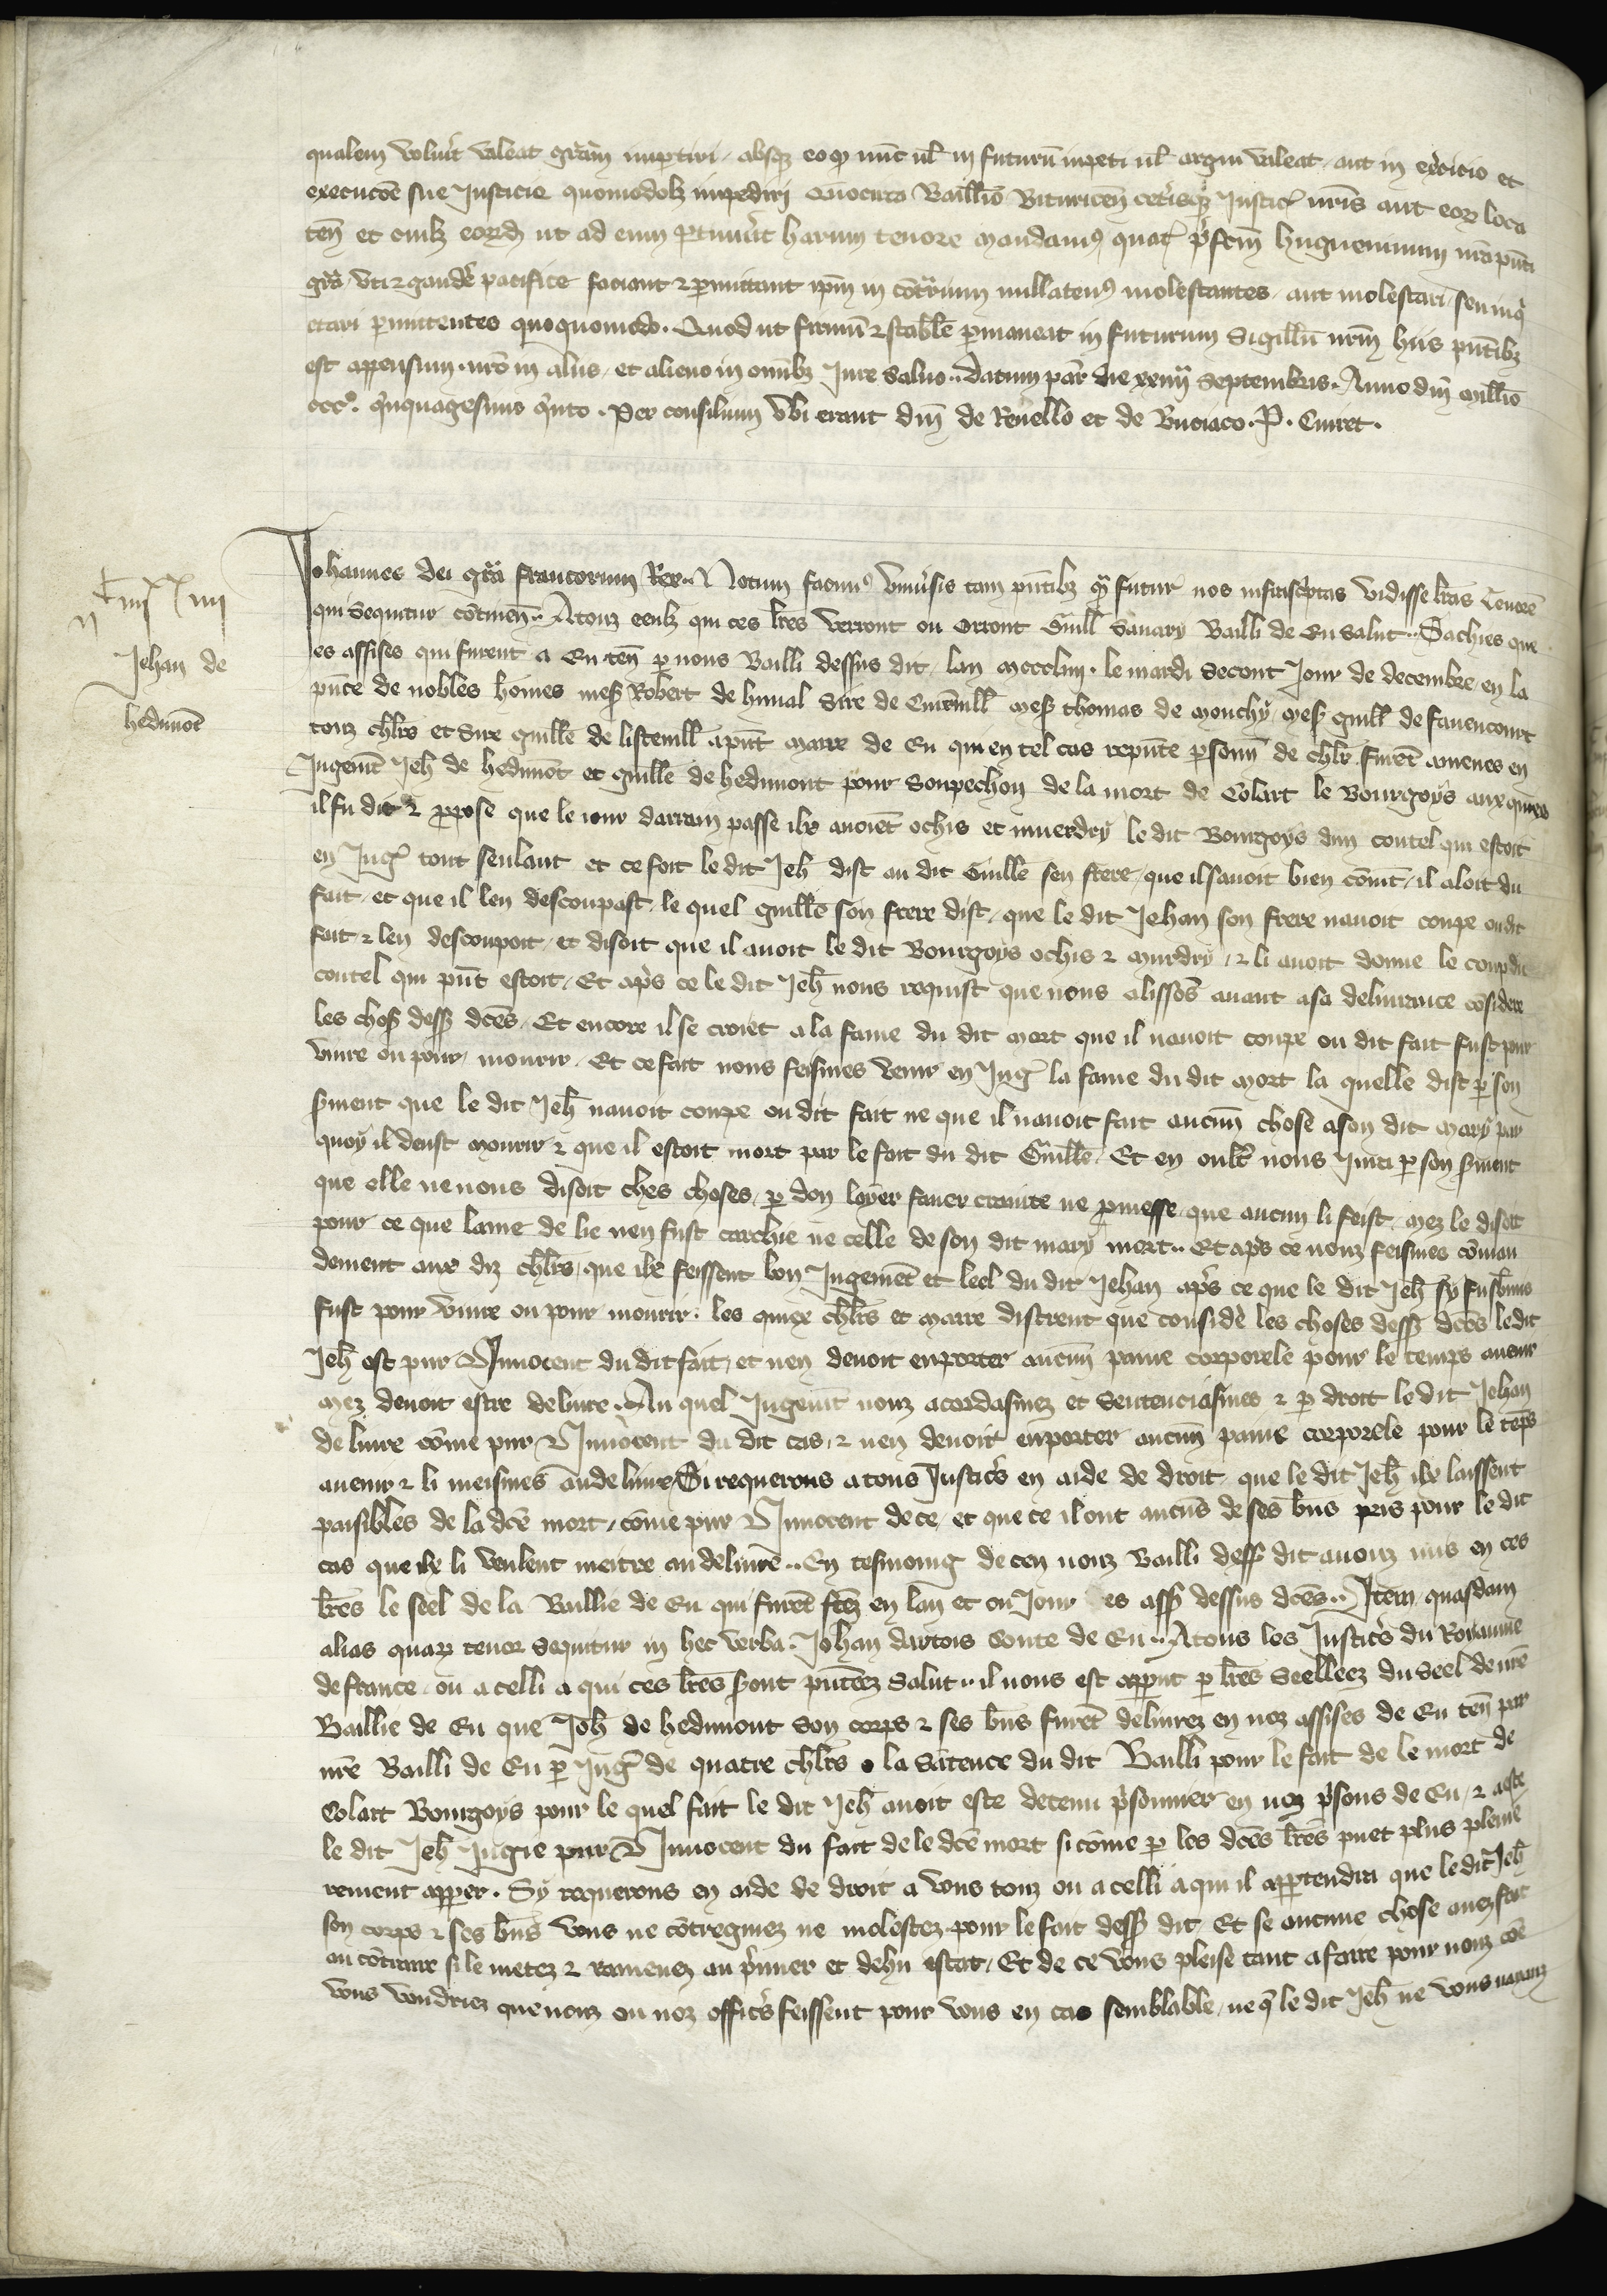 qualem voluit valeat gram impertiri absq eo q nuc ul in futuru inpeti ul argui valeat aut in exercicio et
execucoe sue Justicie quomodolz impediri Quocirca Baillio Bituricen ceterisq Justic nris aut eor loca
ten et cuilz eord ut ad eum ptinuit harum tenore mandam quat pfatm hugueninum nra pnti
gra uti z gaude pacifice faciant z pmittant ipm in cotrium nullaten molestantes aut molestari seu inq
etari pmittentes quoquomodo. Quod ut firmu z stabile pmaneat in futurum Sigillu nrm hiis pntibz
est appensum. nro in aliis et alieno in omibz Jure saluo. Datum par die xxiiij Septembris. Anno dni millio
ccc°. qnquagesimo qnto. Per consilium vbi erant dni de Reuello et de Buciaco. P. Cuiret.
iiij xx iiij
Jehan de
hedimot
Johannes dei gra francorum Rex. Notum facim vniusis tam pntibz q futur nos infrascptas vidisse lras Tenore
qui sequitur cotinen. Atouz ceulz qui ces lres verront ou orront Guill Sauary Bailli de Eu salut. Sachies que
es assises qui furent a Eu ten p nous Bailli dessus dit lan mccc liiij. le mardi secont Jour de decembre en la
pnce de nobles homes mes Robert de himal Sire de Cuireuill mes thomas de mouchy mes guill de fauencourt
touz chlrs et Sire guille de listeuill apnt marre de Eu qui en tel cas repnte psonn de chlr furet amenes en
Jugemt Jeh de hedimot et guille de hedimont pour soupechon de la mort de Colart le Bourgoys auxquiex
il fu dit z ppose que le iour darrain passe ilx auoiet ochis et murdry le dit Bourgoys dun coutel qui estoit
en Jug tout senlant et ce fait le dit Jeh dist au dit Guille sen frere que il sauoit bien comt il aloit du
fait et que il len descoupast le quel guille son frere dist que le dit Jehan son frere nauoit coupe ou dit
fait z len descoupoit et disoit que il auoit le dit Bourgoys ochis z murdry z li auoit donne le coup du
coutel qui pnt estoit Et apres ce le dit Jeh nous requist que nous alissos auant a sa deliurance cosidere
les chos dess dces Et encore il se croiet a la fame du dit mort que il nauoit coupe ou dit fait fust pour
viure ou pour mourir. Et ce fait nous feismes venir en Jug la fame du dit mort la quelle dist p son
sment que le dit Jeh nauoit coupe ou dit fait ne que il nauoit fait aucun chose a son dit mary par
quoy il deust mourir z que il estoit mort par le fait du dit Guille Et en oult nous Jura p son sment
que elle ne nous disoit ches choses p don loyer faueur crainte ne pmesse que aucun li feist mez le disoit
pour ce que lame de lie nen fust carchie ne celle de son dit mary mort. Et apres ce nouz feismes coman
dement aux diz chlrs que ilx feissent bon Jugemet et leel du dit Jehan apres ce que le dit Jeh sy
fust pour viure ou pour mourir. les quiex chlrs et marre distrent que considere les choses dess dces le dit
Jeh est pur z Innocent du dit fait et nen deuoit enporter aucun paine corporele pour le temps auenir
mez deuoit estre deliure. Au quel Jugemt nouz acordasmez et sentenciasmes z p droit le dit Jehan
deliure come pur z Innocent du dit cas z nen deuoit enporter aucun paine corporele pour le teps
auenir z li meismes auons deliure Si requerons a tous Justics en aide de droit que le dit Jeh ilx laissent
paisibles de la dce mort come pur z Innocent de ce et que ce il ont aucus de ses biens pris pour le dit
cas que ilx li veulent mettre au deliure. En tesmoing de ceu nouz Bailli dess dit auonz mis en ces
lres le seel de la Baillie de Eu qui furet ftez en lan et ou Jour es ass dessus dces. Item quasdam
alias quar tenor sequitur in hec verba. Johan dartois Conte de Eu. Atous les Justics du Royaume
de france ou a celli a qui ces lres sront pntees Salut. il nous est apput p lres Seelleez du seel de nre
Baillie de Eu que Joh de hedimont son corps z ses bns furet deliurez en noz assises de Eu ten par
nre Bailli de Eu p Jug de quatre chlrs o la satence du dit Bailli pour le fait de le mort de
Colart Bourgoys pour le quel fait le dit Jeh auoit este detenu psonnier en noz psons de Eu z a este
le dit Jeh Jugie pur z Innocent du fait de le dce mort si come p les dces lres puet plus pleine
rement apper. Sy requerons en aide de droit a vous touz ou a celli a qui il appartendra que le dit Jeh
son corps z ses bns vous ne cotregniez ne molestez pour le fait dess dit Et se aucune chose auez fait
au cotraire si le metez z ramenez au pmier et dehu estat Et de ce vous pleise tant a faire pour nouz coe
vous voudriez que nouz ou noz offics feissent pour vous en cas semblable ne q le dit Jeh ne vous